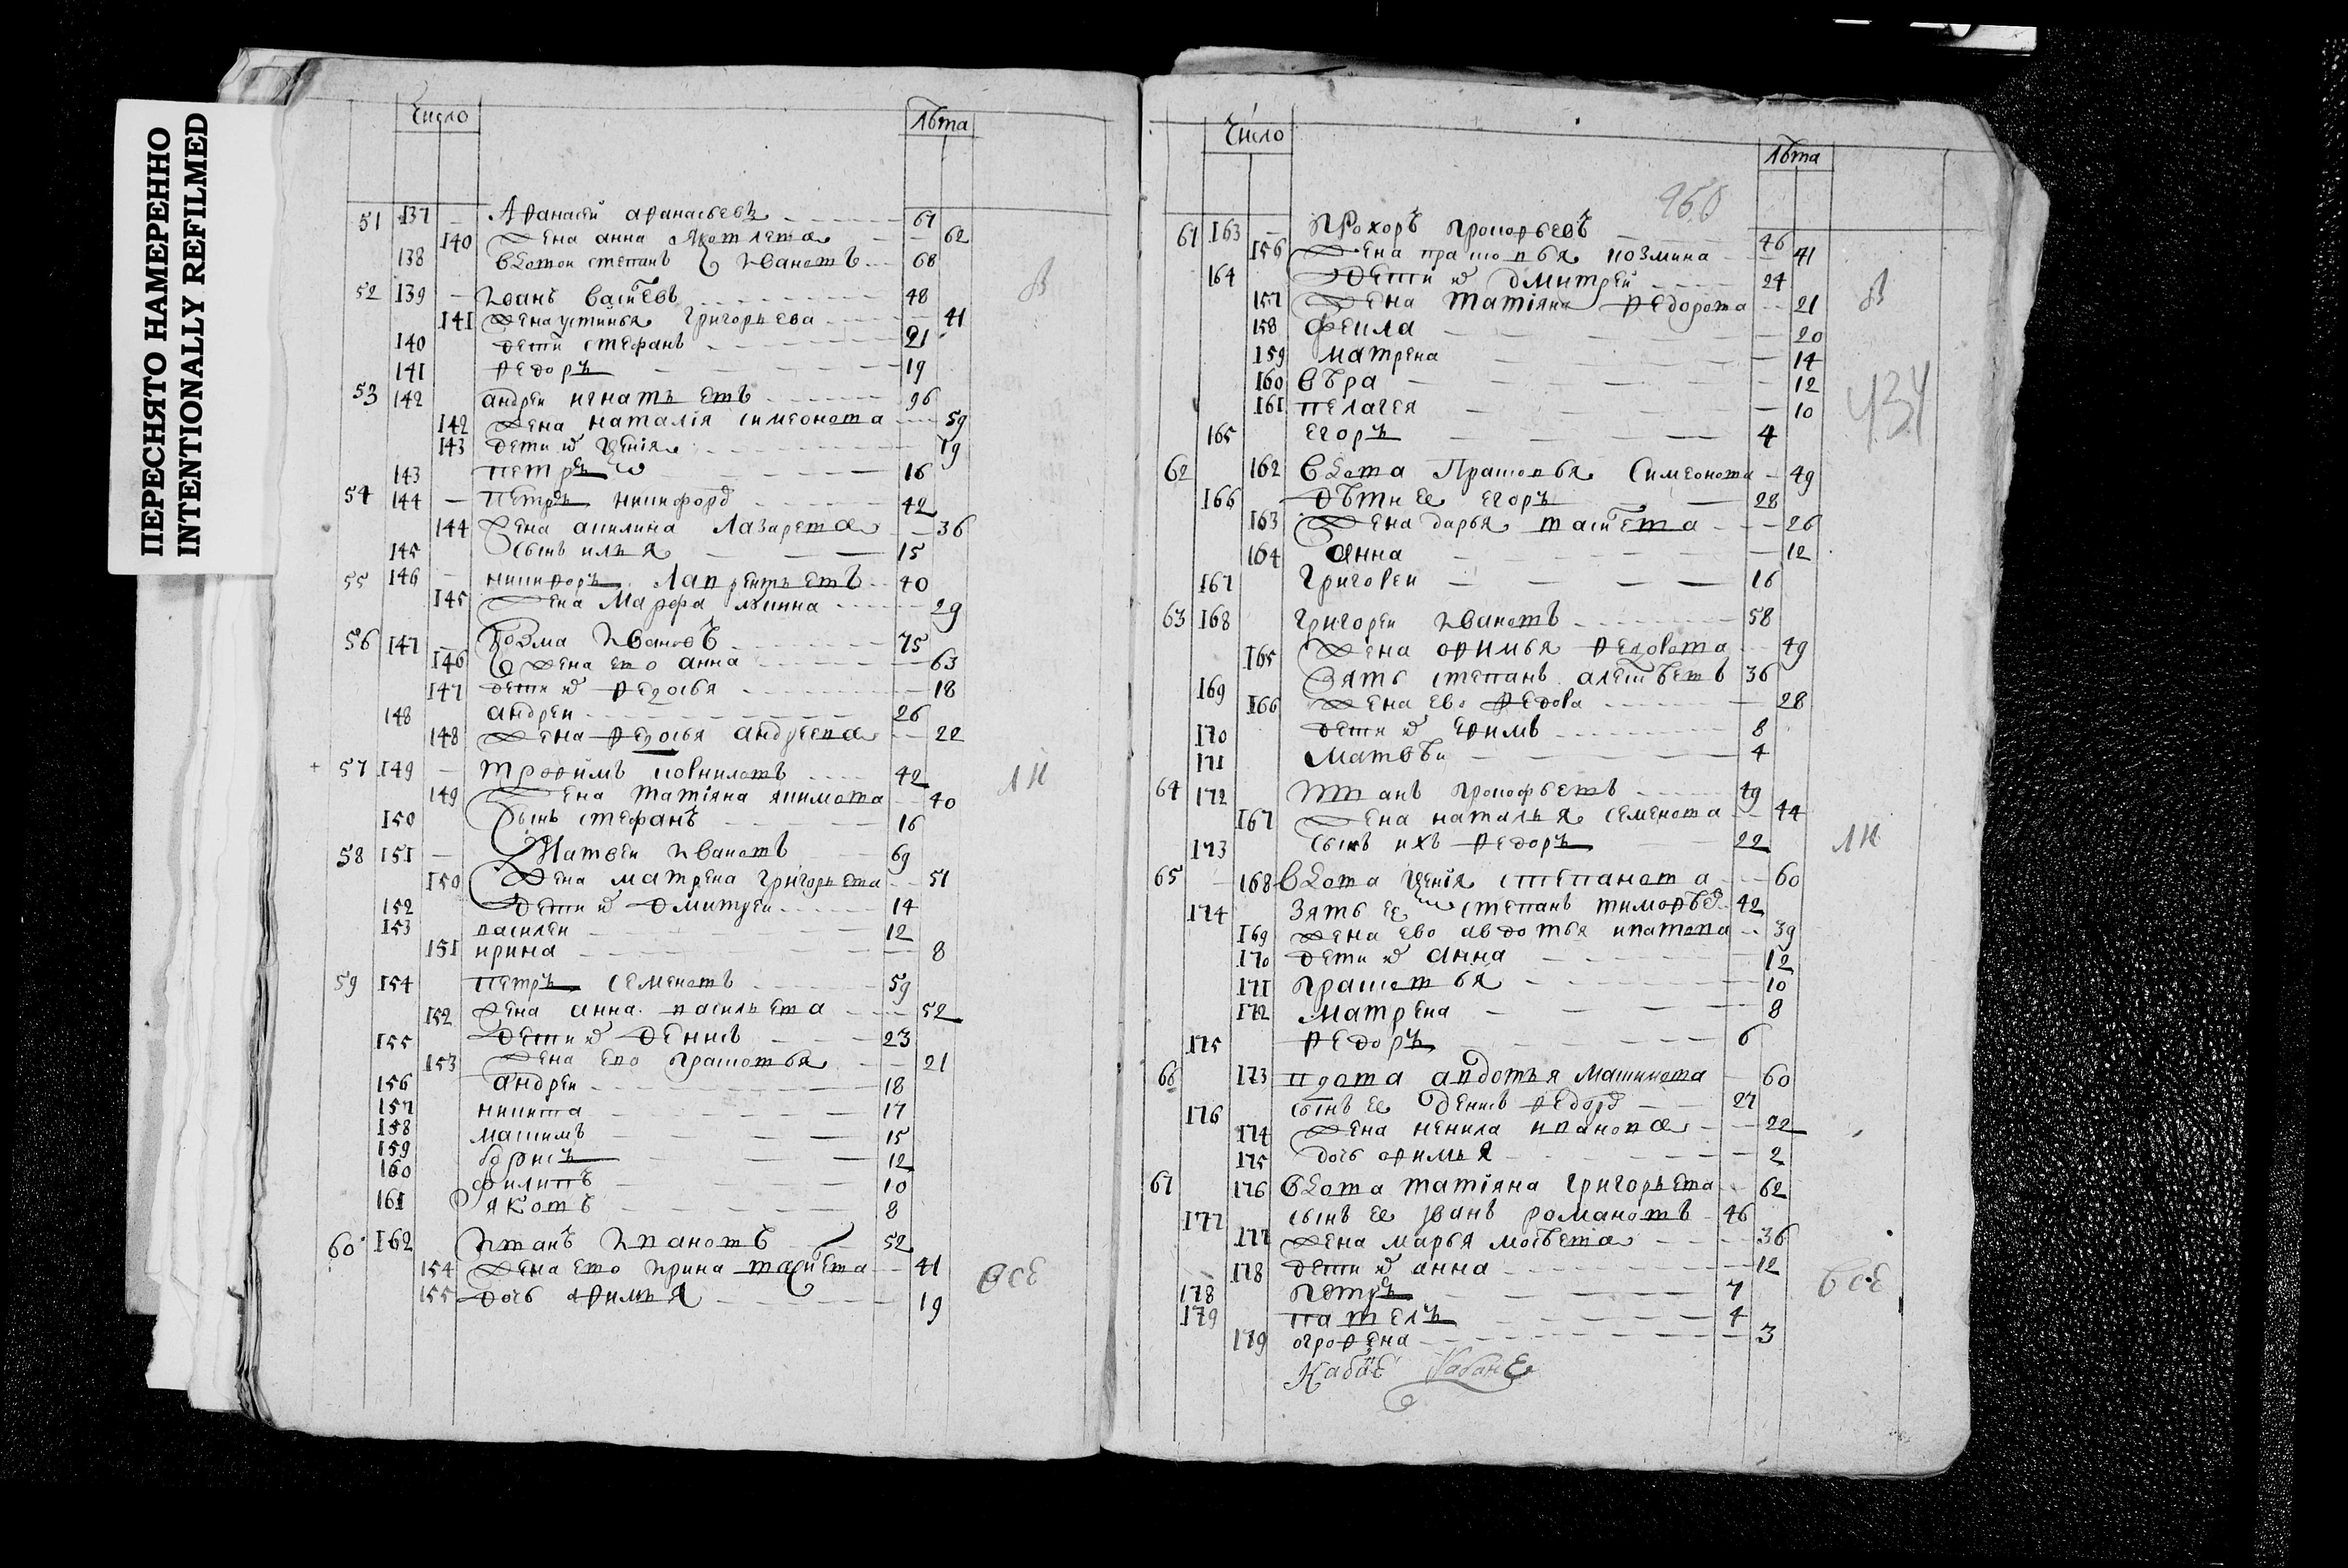 ПЕРЕСНЯТО НАМЕРЕННО
INTENTIONALLY REFILMED
Число лѣта
51 137 — Афанасей афанасьевъ 67
140 жена анна яковлева 62
138 вдовои степанъ ивановъ 68
52 139 — иванъ васильевъ 48
141 жена устинья григорьева 41
140 дети стефанъ 21
141 федоръ 19
53 142 андреи игнатьевъ 96
142 жена наталія симеонова 59
143 дети их 19
143 петръ 16
54 144 — петръ никифоров 42
144 жена акилина лазарева 36
145 сынъ илья 15
55 146 — никифоръ лаврентьевъ 40
145 жена марфа 29
56 147 — козма ивановъ 75
146 жена ево анна 63
147 дети их федосья 18
148 андреи 26
148 жена федосья андреева 22
+ 57 149 — трофимъ корниловъ 42
149 жена татіяна якимова 40
150 сынъ стефанъ 16
58 151 — Матвеи ивановъ 69
150 жена матрена григорьева 51
152 дети их дмитреи 14
153 василеи 12
151 ирина 8
59 154 петръ семеновъ 59
152 жена анна васильева 52
155 дети их денисъ 23
153 жена ево прасковья 21
156 андреи 18
157 никита 17
158 максимъ 15
159 борисъ 12
160 филипъ 10
161 яковъ 8
60 162 иванъ ивановъ 52
154 жена ево ирина васильева 41
155 дочь афимья 19
все
Число лѣта
950
61 163 — Прохоръ прокофьевъ 46
156 жена прасковья козмина 41
164 дети их дмитреи 24
157 жена татіяна федорова 21
158 фекла 20
159 матрена 14
160 вѣра 12
161 пелагея 10
434
165 егоръ 4
62 162 вдова Прасковья Симеонова 49
166 дѣти ее егоръ 28
163 жена дарья васильева 26
164 анна 12
167 григореи 16
63 168 григореи ивановъ 58
165 жена афимья федорова 49
169 зять степанъ алексѣевъ 36
166 жена ево федора 28
170 дети их ефимъ 8
171 матвѣи 4
64 172 иванъ прокофьевъ 49
167 жена наталья семенова 44
173 сынъ ихъ федоръ 22
65 — 168 вдова степанова 60
174 зять ее степанъ тимофѣев 42
169 жена ево авдотья ипатова 39
170 дети их анна 12
171 прасковья 10
172 матрена 8
175 федоръ 6
66 173 вдова авдотья максимова 60
176 сынъ ее денисъ федоров 27
174 жена ненила иванова 22
175 дочь афимья 2
67 176 вдова татіяна григорьева 62
177 сынъ ее иванъ романовъ 46
177 жена марья мосѣева 36
178 дети их анна 12
178 петръ 7
179 павелъ 4
179 огрофена 3
все